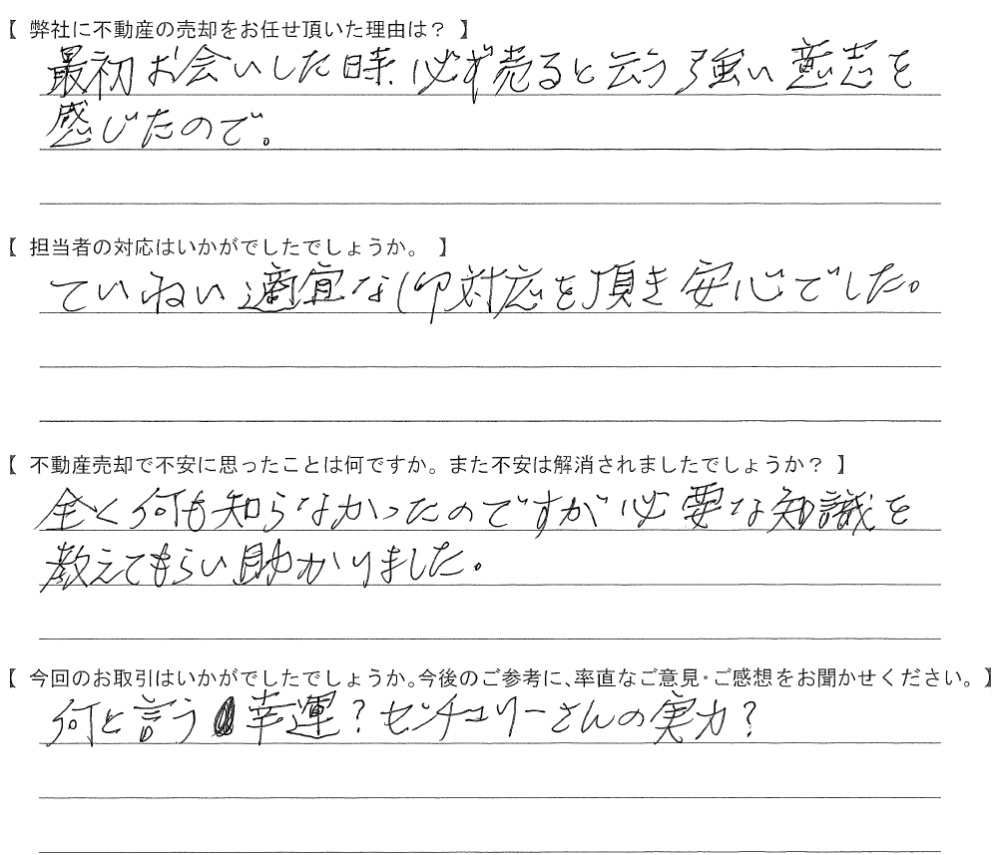 【 弊社に不動産の売却をお任せ頂いた理由は？ 】
最初お会いした時、必ず売ると云う強い意志を
感じたので。
【 担当者の対応はいかがでしたでしょうか。 】
ていねい適宜な御対応を頂き安心でした。
【 不動産売却で不安に思ったことは何ですか。また不安は解消されましたでしょうか？ 】
全く何も知らなかったのですが必要な知識を
教えてもらい助かりました。
【 今回のお取引はいかがでしたでしょうか。今後のご参考に、率直なご意見・ご感想をお聞かせください。】
何と言う幸運？センチュリーさんの実力？